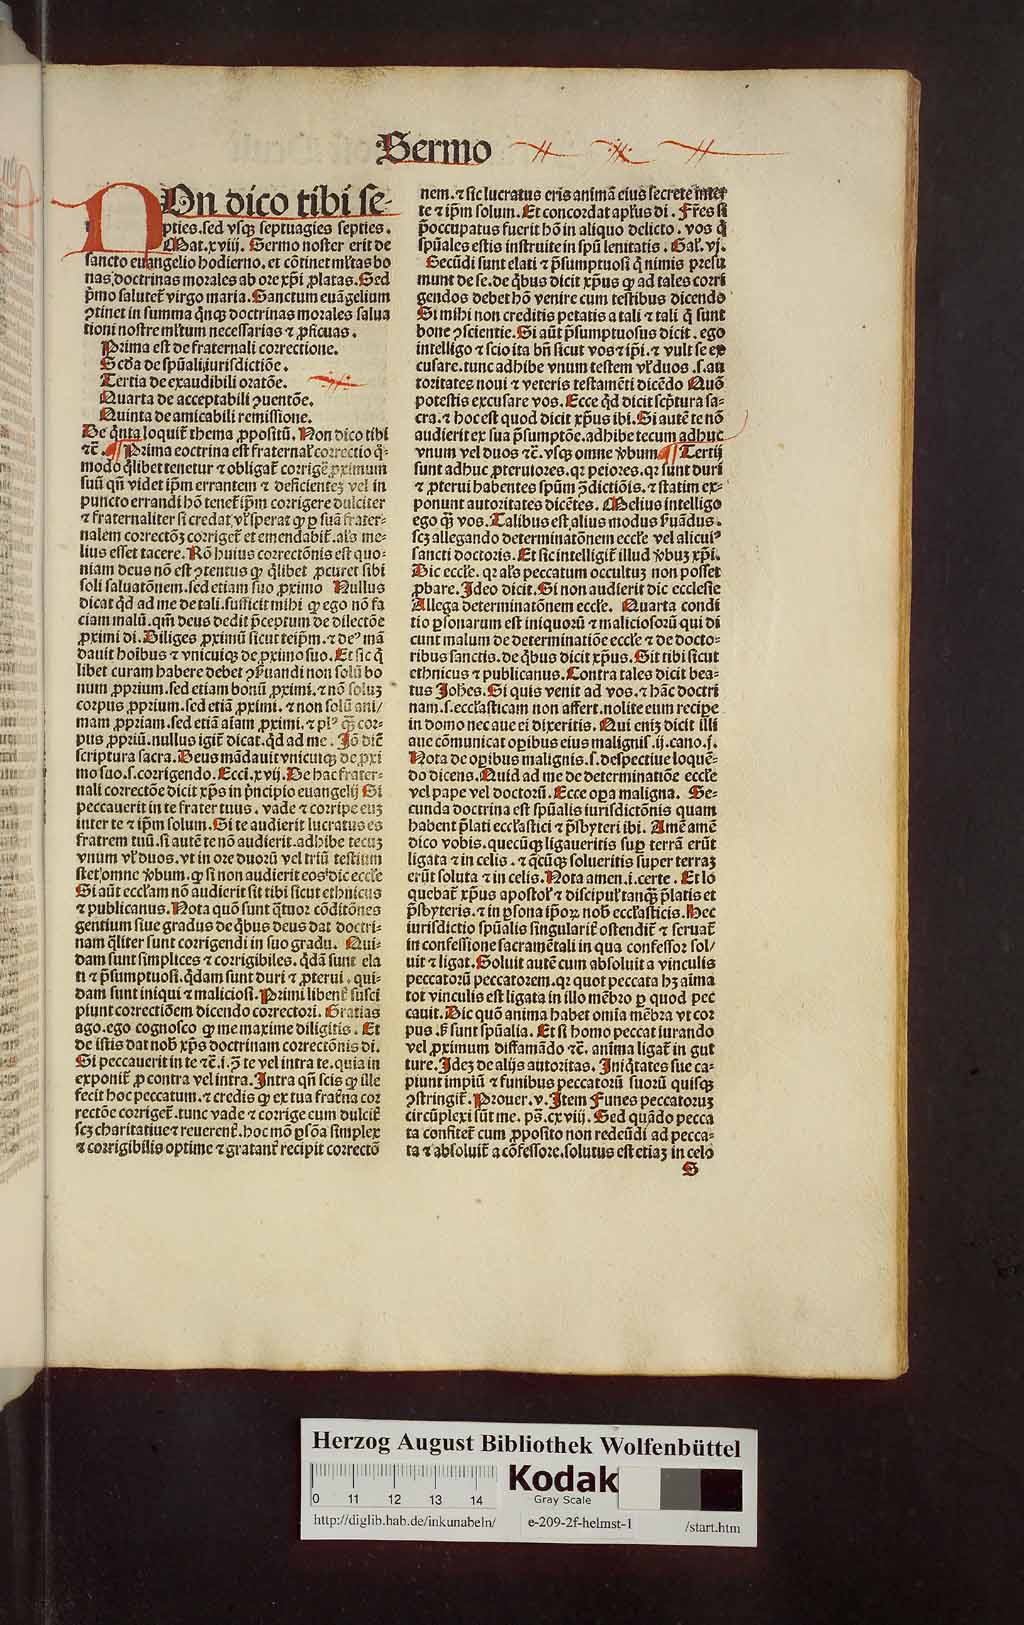 Sermo
NOn dico tibi se-
pties.sed vsq̃ septuagies septies.
Mat.xviij. Sermo noster erit de
sancto euangelio hodierno. et cōtinet ml̃tas bo
nas doctrinas morales ab ore xp̄i ꝓlatas. Sed
p̄mo salutet̃ virgo maria. Sanctum euāgelium
ꝯtinet in summa q̄nq̃ doctrinas morales salua
tioni nostre ml̃tum necessarias ⁊ ꝓficuas.
Prima est de fraternali correctione.
Scd̓a de sp̄uali iurisdictiōe.
Tertia de exaudibili oratōe.
Quarta de acceptabili ꝯuentōe.
Quinta de amicabili remissione.
De q̄nta loquit̃ thema ꝓpositū. Non dico tibi
⁊c̄. ¶ Prima eoctrina est fraternal̃ correctio q̄-
modo q̄libet tenetur ⁊ obligat̃ corrigẽ ꝓximum
suū qñ videt ip̄m errantem ⁊ deficientez vel in
puncto errandi hō tenet̃ ip̄m corrigere dulciter
⁊ fraternaliter si credat vl̃ sperat ꝙ ꝑ suā frater-
nalem correctōꝫ corriget̃ et emendabit̃. al̃s me-
lius esset tacere. Rō huius correctōnis est quo-
niam deus nō est ꝯtentus ꝙ q̄libet ꝓcuret sibi
soli saluatōnem. sed etiam suo ꝓximo Nullus
dicat qd̓ ad me de tali. sufficit mihi ꝙ ego nō fa
ciam malū. qm̄ deus dedit p̄ceptum de dilectōe
ꝓximi di. Diliges ꝓximū sicut teip̄m. ⁊ deꝰ mā
dauit hoībus ⁊ vnicuiqꝫ de ꝓximo suo. Et sic q̄
libet curam habere debet ꝯẜuandi non solū bo
num ꝓprium. sed etiam bonū ꝓximi. ⁊ nō soluꝫ
corpus ꝓprium. sed etiā ꝓximi. ⁊ non solū ani/
mam ꝓpriam. sed etiā aīam ꝓximi. ⁊ plꝰ q̄ꝫ cor-
pus ꝓpriū. nullus igit̃ dicat. qd̓ ad me. Iō dic̄
scriptura sacra. Deus mādauit vnicuiqꝫ de ꝓxi
mo suo. s. corrigendo. Ecci.xvij. De hac frater-
nali correctōe dicit xp̄s in p̄ncipio euangelij Si
peccauerit in te frater tuus. vade ⁊ corripe euꝫ
inter te ⁊ ip̄m solum. Si te audierit lucratus es
fratrem tuū. si autē te nō audierit. adhibe tecuꝫ
vnum vl̃ duos. vt in ore duorū vel triū testium
stet omne v̓bum. ꝙ si non audierit eos dic eccl̃e
Si aūt eccl̃am nō audierit sit tibi sicut ethnicus
⁊ publicanus. Nota quō sunt q̄tuor cōditōnes
gentium siue gradus de q̄bus deus dat doctri-
nam q̄liter sunt corrigendi in suo gradu. Qui-
dam sunt simplices ⁊ corrigibiles. q̄dā sunt ela
ti ⁊ p̄sumptuosi. q̄dam sunt duri ⁊ ꝓterui. qui-
dam sunt iniqui ⁊ maliciosi. Primi libent̃ susci
piunt correctiōem dicendo correctori. Gratias
ago. ego cognosco ꝙ me maxime diligitis. Et
de istis dat nob̃ xp̄s doctrinam correctōnis di.
Si peccauerit in te ⁊c̄. i. ꝯ̄ te vel intra te. quia in
exponit̃ ꝓ contra vel intra. Intra qñ scis ꝙ ille
fecit hoc peccatum. ⁊ credis ꝙ ex tua frat̃na cor
rectōe corriget̃. tunc vade ⁊ corrige eum dulcit̃
scꝫ charitatiue ⁊ reuerent̃. hoc mō ꝑsōa simplex
⁊ corrigibilis optime ⁊ gratant̃ recipit correctō
nem. ⁊ sic lucratus eris animā eius secrete inter
te ⁊ ip̄m solum. Et concordat apl̃us di. Fr̄es si
p̄occupatus fuerit hō in aliquo delicto. vos q̄
sp̄uales estis instruite in sp̄u lenitatis. Gal̃. vj.
Secūdi sunt elati ⁊ p̄sumptuosi q̄ nimis presu
munt de se. de q̄bus dicit xp̄us ꝙ ad tales corri
gendos debet hō venire cum testibus dicendo
Si mihi non creditis petatis a tali ⁊ tali q̄ sunt
bone ꝯscientie. Si aūt p̄sumptuosus dicit. ego
intelligo ⁊ scio ita bñ sicut vos ⁊ ip̄i. ⁊ vult se ex
cusare. tunc adhibe vnum testem vl̃ duos. s. au
toritates noui ⁊ veteris testamēti dicēdo Quō
potestis excusare vos. Ecce qd̓ dicit scp̄tura sa-
cra. ⁊ hoc est quod dicit xp̄us ibi. Si autē te nō
audierit ex sua p̄sumptōe. adhibe tecum adhuc
vnum vel duos ⁊c̄. vsqꝫ omne v̓bum ¶ Tertij
sunt adhuc ꝓteruiores. qꝛ peiores. qꝛ sunt duri
⁊ ꝓterui habentes sp̄um ꝯ̄dictiōis. ⁊ statim ex-
ponunt autoritates dicētes. Melius intelligo
ego q̄ꝫ vos. Talibus est alius modus ẜuādus.
scꝫ allegando determinatōnem eccl̃e vel alicuiꝰ
sancti doctoris. Et sic intelligit̃ illud v̓buꝫ xp̄i.
Dic eccl̃e. qꝛ al̃s peccatum occultuꝫ non posset
ꝓbare. Ideo dicit. Si non audierit dic ecclesie
Allega determinatōnem eccl̃e. Quarta condi
tio ꝑsonarum est iniquorū ⁊ maliciosorū qui di
cunt malum de determinatiōe eccl̃e ⁊ de docto-
ribus sanctis. de q̄bus dicit xp̄us. Sit tibi sicut
ethnicus ⁊ publicanus. Contra tales dicit bea-
tus Joh̃es. Si quis venit ad vos. ⁊ hāc doctri
nam. s. eccl̃asticam non affert. nolite eum recipe
in domo nec aue ei dixeritis. Qui eniꝫ dicit illi
aue cōmunicat oꝑibus eius malignis. ij. cano. j.
Nota de oꝑibus malignis. s. despectiue loquē-
do dicens. Quid ad me de determinatiōe eccl̃e
vel pape vel doctorū. Ecce oꝑa maligna. Se-
cunda doctrina est sp̄ualis iurisdictōnis quam
habent p̄lati eccl̃astici ⁊ p̄sbyteri ibi. Amē amē
dico vobis. quecūqꝫ ligaueritis suꝑ terrā erūt
ligata ⁊ in celis. ⁊ q̄cūqꝫ solueritis super terraꝫ
erūt soluta ⁊ in celis. Nota amen. i. certe. Et lo
quebat̃ xp̄us apostol̃ ⁊ discipul̃ tanq̄ꝫ p̄latis et
p̄sbyteris. ⁊ in ꝑsona ip̄oꝝ nob̃ eccl̃asticis. Hec
iurisdictio sp̄ualis singularit̃ ostendit̃ ⁊ seruat̃
in confessione sacramētali in qua confessor sol/
uit ⁊ ligat. Soluit autē cum absoluit a vinculis
peccatorū peccatorem. qꝛ quot peccata hꝫ aīma
tot vinculis est ligata in illo mēbro ꝑ quod pec
cauit. Dic quō anima habet om̄ia mēbra vt cor
pus. ẜ sunt sp̄ualia. Et si homo peccat iurando
vel ꝓximum diffamādo ⁊c̄. anima ligat̃ in gut
ture. Ideꝫ de alijs autoritas. Iniq̄tates sue ca-
piunt impiū ⁊ funibus peccatorū suorū quisqꝫ
ꝯstringit̃. Prouer. v. Item Funes peccatoruꝫ
circūplexi sūt me. ps̄. cxviij. Sed quādo pecca
ta confitet̃ cum ꝓposito non redeūdi ad pecca-
ta ⁊ absoluit̃ a cōfessore. solutus est etiaꝫ in celo
S
Herzog August Bibliothek Wolfenbüttel
0 11 12 13 14
Kodak
Gray Scale
http://diglib.hab.de/inkunabeln/ e-209-2f-helmst-1 /start.htm